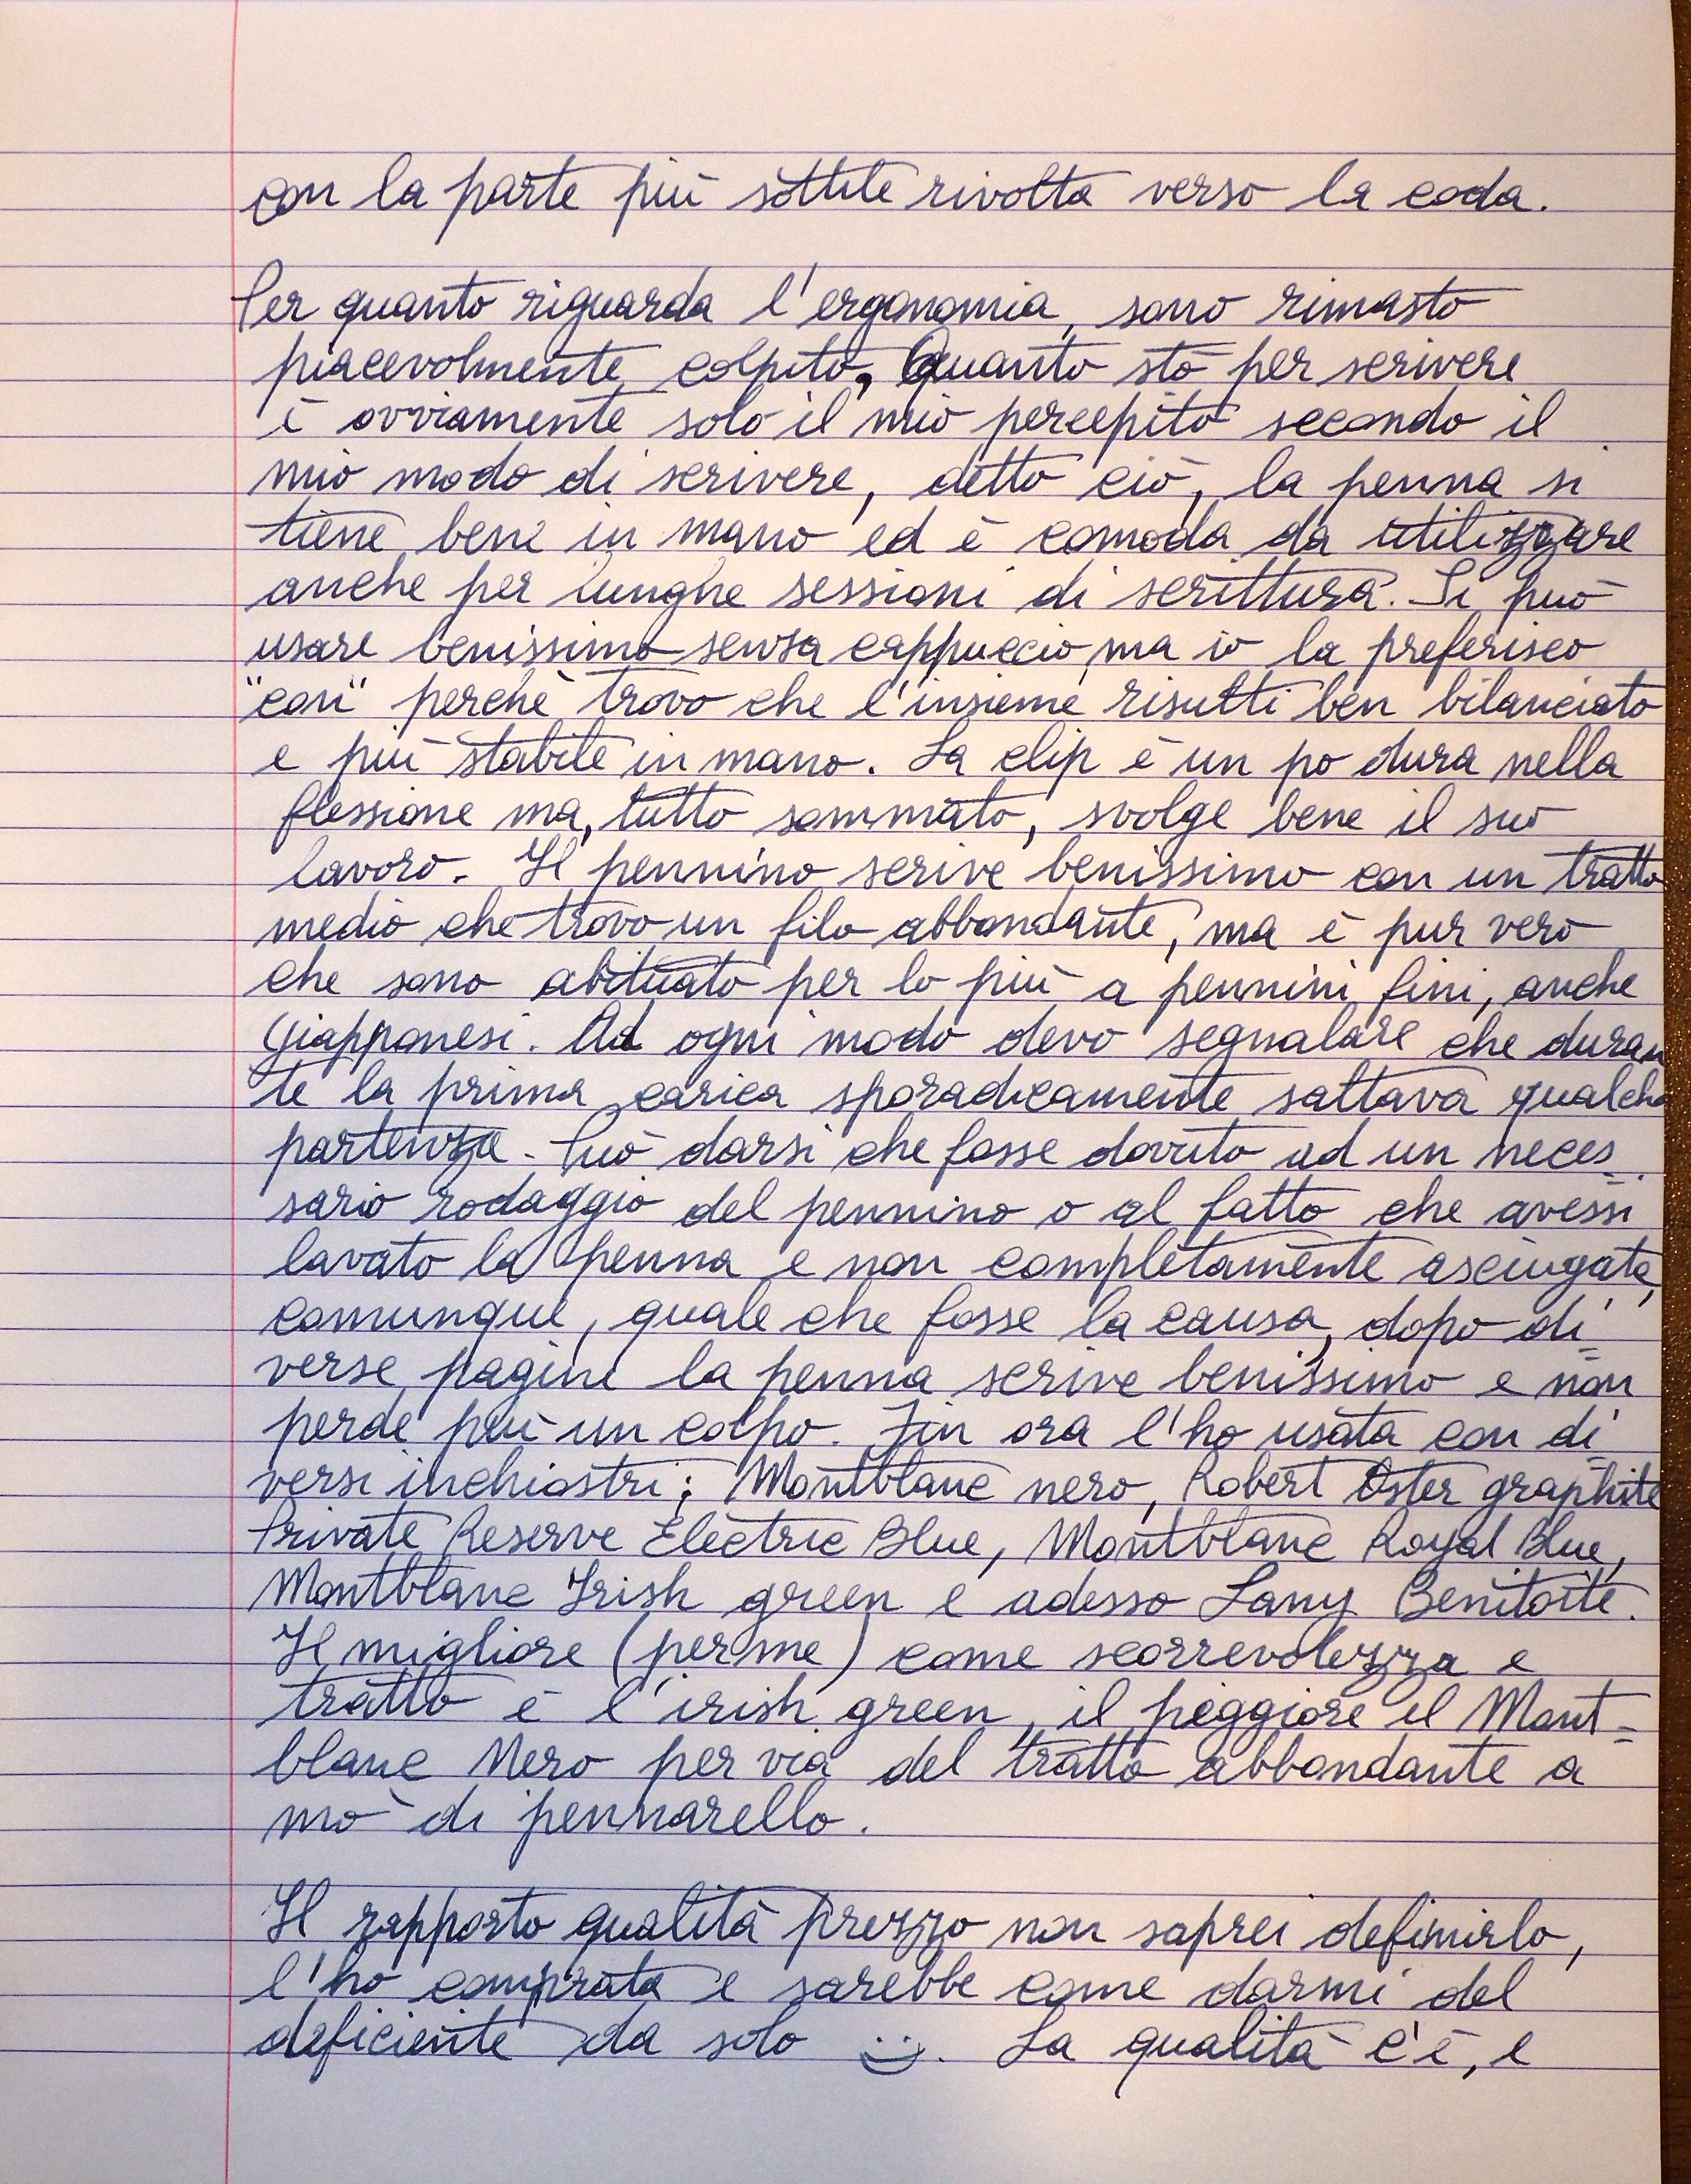 con la parte più sottile rivolta verso la coda.
Per quanto riguarda l'ergonomia, sono rimasto
piacevolmente colpito, Quanto sto per scrivere
è ovviamente solo il mio percepito secondo il
mio modo di scrivere, detto ciò, la penna si
tiene bene in mano ed è comoda da utilizzare
anche per lunghe sessioni di scrittura. Si può
usare benissimo senza cappuccio, ma io la preferisco
"con" perché trovo che l'insieme risulti ben bilanciato
e più stabile in mano. La clip è un po dura nella
flessione ma, tutto sommato, svolge bene il suo
lavoro. Il pennino scrive benissimo con un tratto
medio che trovo un filo abbondante, ma è pur vero
che sono abituato per lo più a pennini fini, anche
giapponesi. Ad ogni modo devo segnalare che duran
te la prima carica sporadicamente saltava qualche
partenza. Può darsi che fosse dovuto ad un neces_
sario rodaggio del pennino o al fatto che avessi
lavato la penna e non completamente asciugata,
comunque, quale che fosse la causa, dopo di_
verse pagine la penna scrive benissimo e non
perde più un colpo. Fin ora l'ho usata con di_
versi inchiostri: Montblanc nero, Robert Oster graphite
Private Reserve Electric Blue, Montblanc Royal Blue,
Montblanc Irish green e adesso Lamy Benitoite.
Il migliore (per me) come scorrevolezza e
tratto è l'irish green, il peggiore il Mont-
blanc Nero per via del tratto abbondante a
mo' di pennarello.
Il rapporto qualità prezzo non saprei definirlo,
l'ho comprata e sarebbe come darmi del
deficiente da solo :). La qualità c'è, e